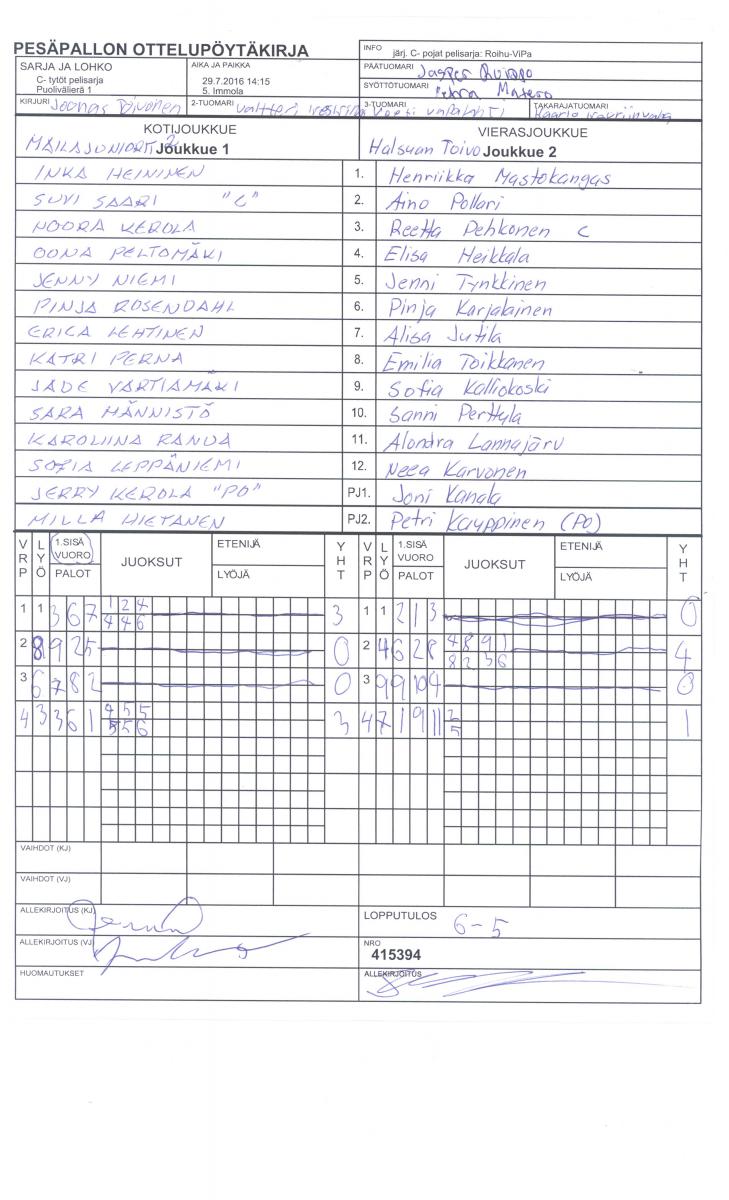 PESÄPALLON OTTELUPÖYTÄKIRJA
INFO järj. C- pojat pelisarja: Roihu-ViPa
SARJA JA LOHKO
C- tytöt pelisarja
Puolivälierä 1
AIKA JA PAIKKA
29.7.2016 14:15
5. Immola
PÄÄTUOMARI Jasper
SYÖTTÖTUOMARI
KIRJURI Joonas Toivonen
2-TUOMARI Valtteri
3-TUOMARI
TAKARAJATUOMARI
KOTIJOUKKUE
MAILAJUNIORIT 2 Joukkue 1
VIERASJOUKKUE
Halsuan Toivo Joukkue 2
INKA HEININEN 1. Henriikka Mastokangas
SUVI SAARI "C" 2. Aino Pollari
NOORA KEROLA 3. Reetta Pehkonen C
OONA PELTOMÄKI 4. Elisa Heikkala
JENNY NIEMI 5. Jenni Tynkkinen
PINJA ROSENDAHL 6. Pinja Karjalainen
ERICA LEHTINEN 7. Alisa Jutila
KATRI PERNA 8. Emilia Toikkanen
JADE VARTIAMÄKI 9. Sofia Kalliokoski
SARA HÄNNISTÖ 10. Sanni Perttula
KAROLIINA RANUA 11. Alondra Lannajärv
SOFIA LEPPÄNIEMI 12. Neea Karvonen
JERRY KEROLA "PO" PJ1. Joni Kanala
MILLA HIETANEN PJ2. Petri Kauppinen (PO)
VRP LYÖ 1.SISÄ VUORO PALOT JUOKSUT ETENIJÄ LYÖJÄ YHT VRP LYÖ 1.SISÄ VUORO PALOT JUOKSUT ETENIJÄ LYÖJÄ YHT
1 1 3 6 7 1 2 4 3 1 1 2 1 3 0
4 4 6
2 8 9 2 5 0 2 4 6 2 8 4 8 9 1 4
8 2 3 6
3 6 7 8 2 0 3 9 9 10 4 0
4 3 3 6 1 4 5 5 3 4 7 1 9 11 2 1
5 5 6 5
VAIHDOT (KJ)
VAIHDOT (VJ)
ALLEKIRJOITUS (KJ)
LOPPUTULOS 6-5
ALLEKIRJOITUS (VJ)
NRO
415394
HUOMAUTUKSET
ALLEKIRJOITUS